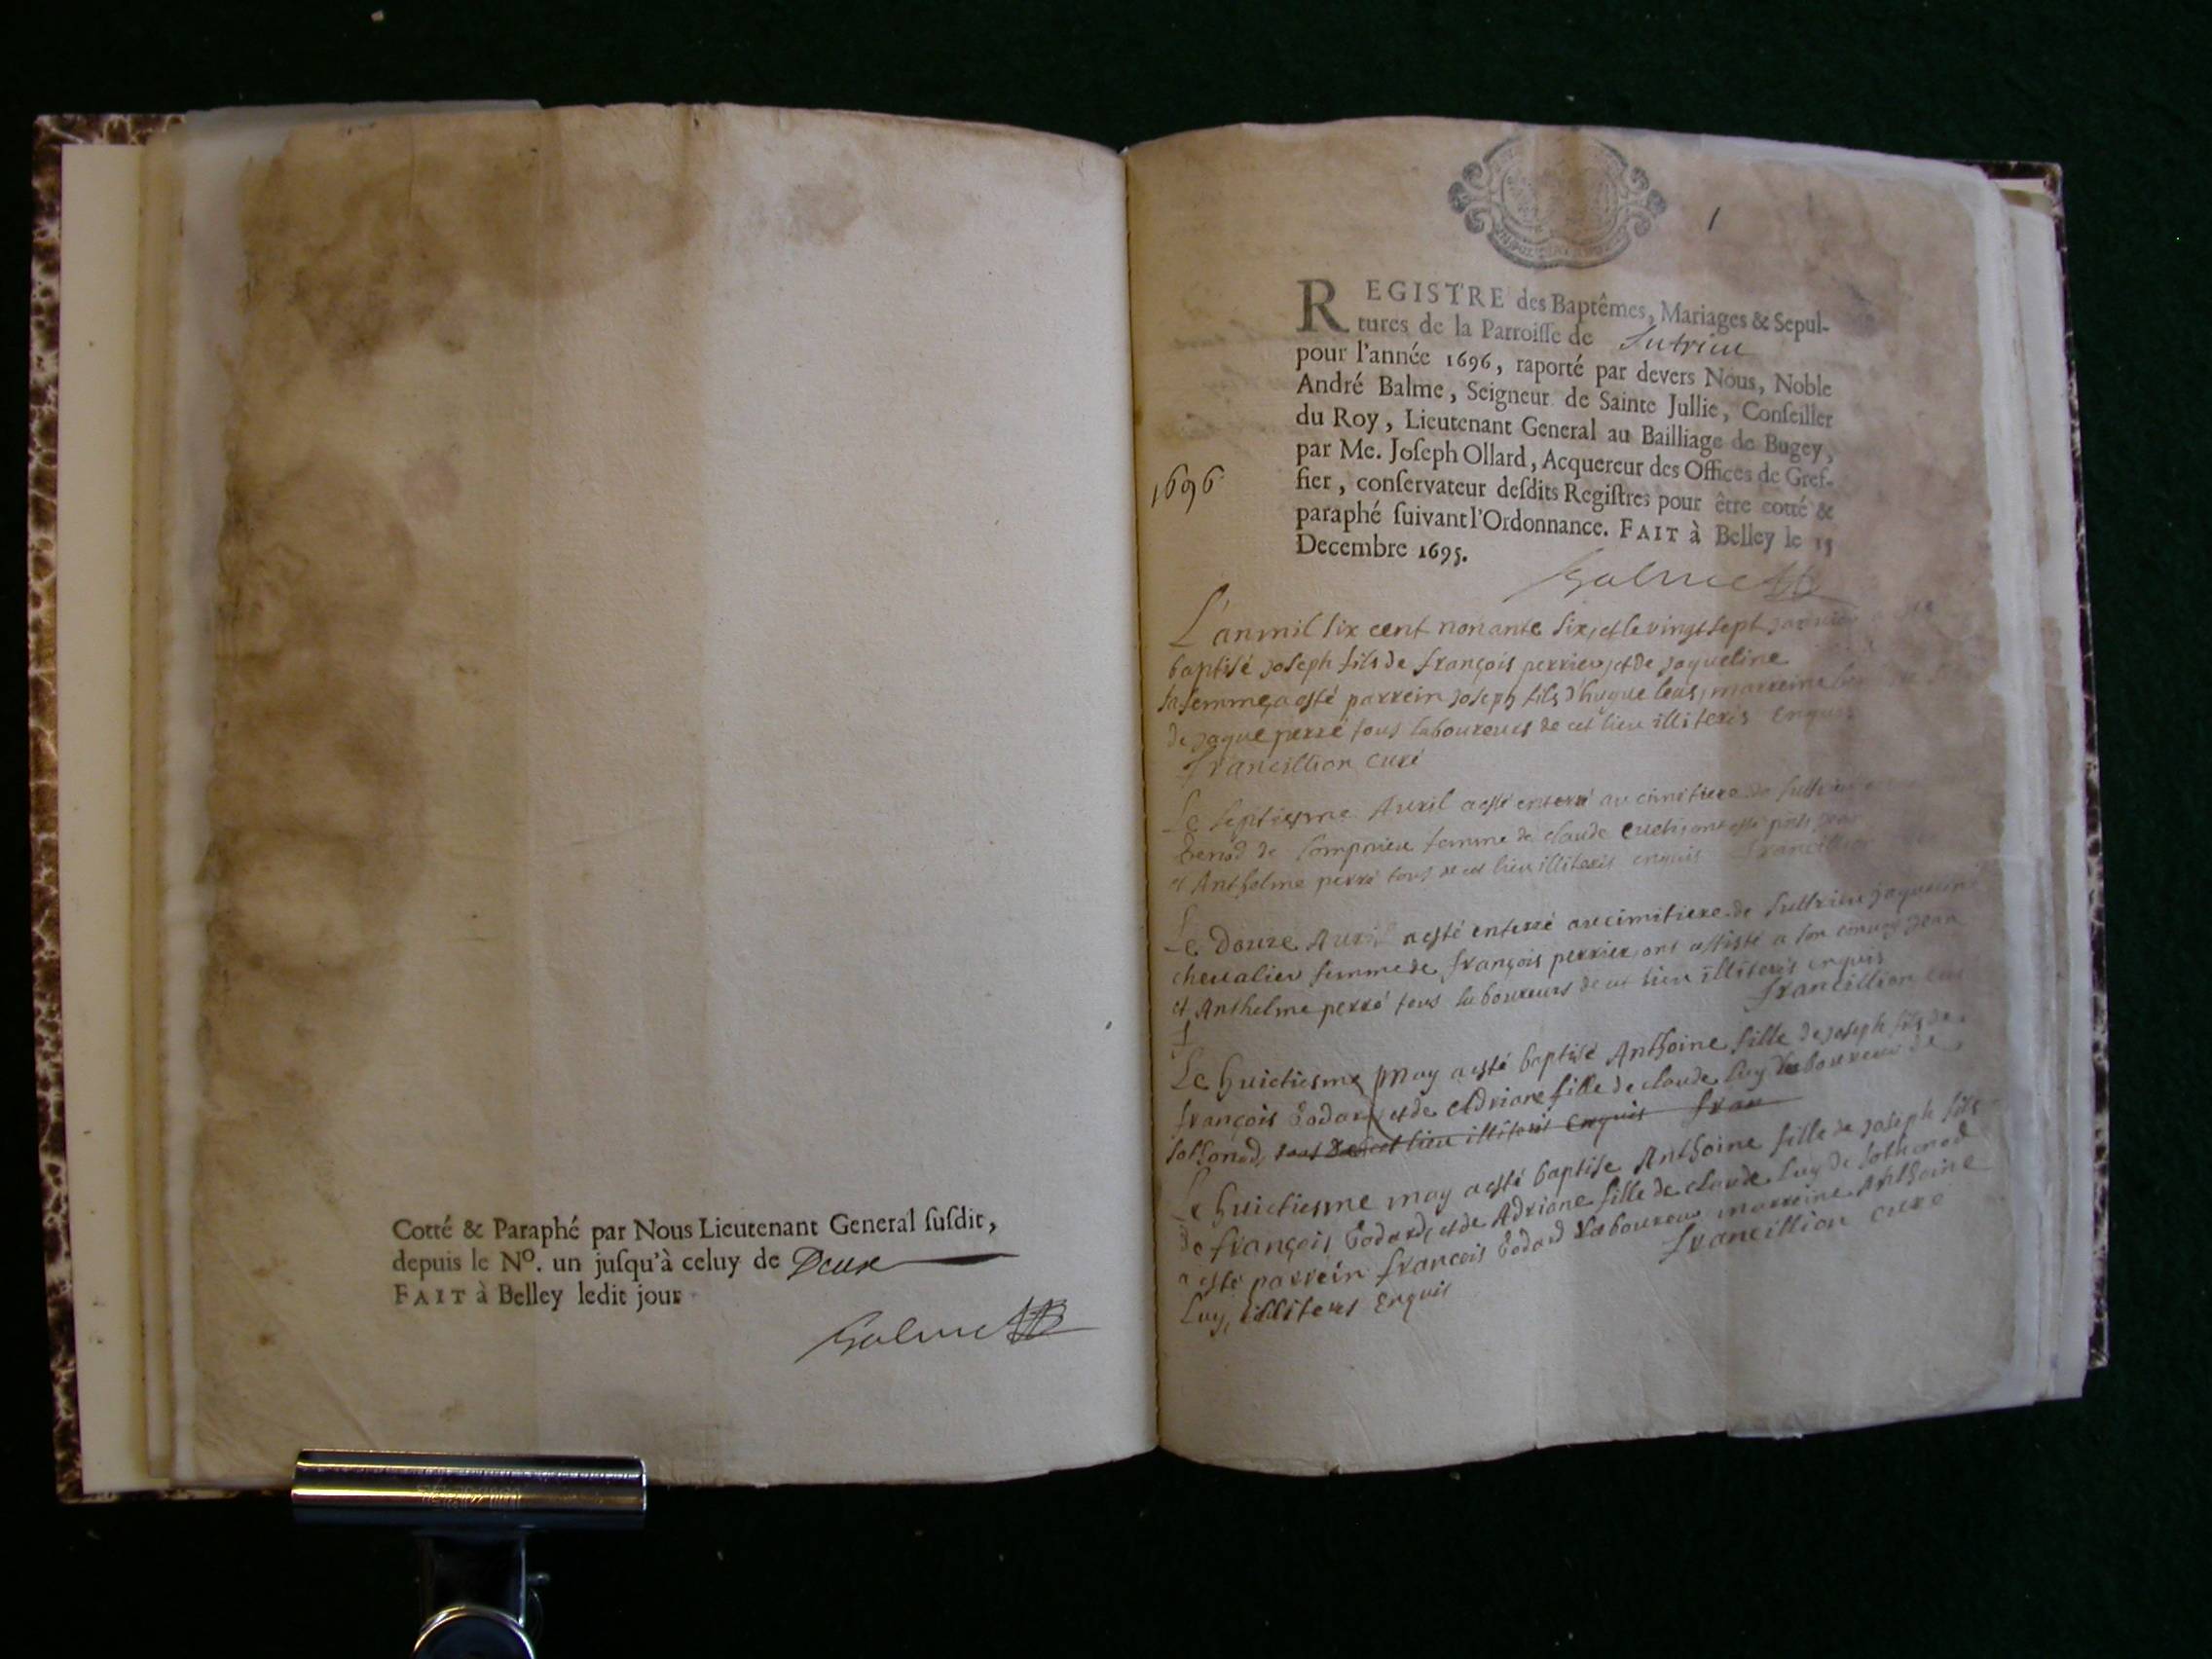 Cotté & Paraphé par Nous Lieutenant General ſuſdit,
depuis le Nº. un juſqu'à celuy de Deux
FAIT à Belley ledit jour
Balme
1
REGISTRE des Baptêmes, Mariages & Sepul-
tures de la Parroiſſe de Sutrieu
pour l'année 1696, raporté par devers Nous, Noble
André Balme, Seigneur de Sainte Jullie, Conſeiller
du Roy, Lieutenant General au Bailliage de Bugey,
par Me. Joſeph Ollard, Acquereur des Offices de Gref-
fier, conſervateur deſdits Regiſtres pour être cotté &
paraphé ſuivant l'Ordonnance. FAIT à Belley le 15
Decembre 1695.
1696
Balme
L'an mil six cent nonante six, et le vingt sept
baptisé joseph fils de françois perrier, et de jaqueline
sa femme, a esté parrein joseph fils d'hugue marreine
de jaque perré tous laboureurs de cet lieu illiterés enquis
francillion curé
Le septiesme Auril a esté enterré au cimitiere de
de femme de claude
et Anthelme perré tous de cet lieu illiteris enquis francillion
Le Douze Auril a esté enterré au cimitiere de suttrieu jaqueline
cheualier femme de françois perrier, ont assisté a son conuoy jean
et Anthelme perré tous laboureurs de cet lieu illiteris enquis
francillion
Le huictiesme may a esté baptisé Anthoine fille de joseph fils de
françois Bodard et de Adriane fille de claude Luy laboureur de
sothonod, tous de cet lieu illiteris enquis fran
Le huictiesme may a esté baptise Anthoine fille de joseph fils
de françois Bodard, et de Adriane fille de claude Luy de sothonod
a esté parrein francois Bodard laboureur marreine Anthoine
Luy, illiteres Enquis francillion curé